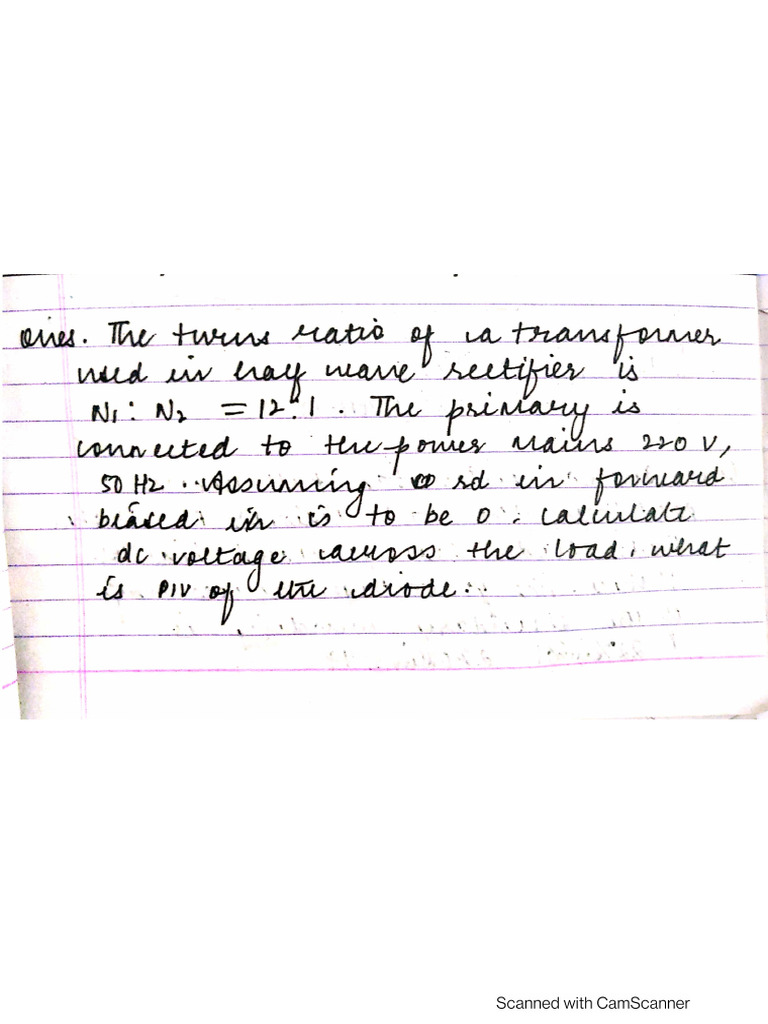 Ques. The turns ratio of a transformer
used in half wave rectifier is
N1 : N2 = 12:1. The primary is
connected to the power mains 220 V,
50 Hz. Assuming rd in forward
biased is to be 0. calculate
dc voltage across the load. what
is PIV of the diode.
Scanned with CamScanner